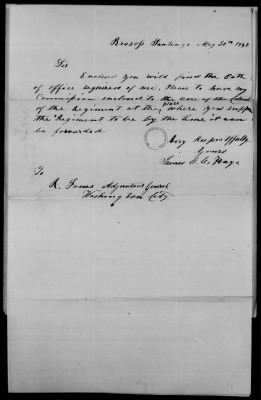 Brasos Santiago May 30th 1848
Sir
Enclosed you will find the Oath
of office required of me. Please to have my
Commission enclosed to the care of the Colonel
of the Regiment at where I
the Regiment to be by the time it can
be forwarded
Very Respectfully
Yours
James
To
R. Jones Adjutant General
Washington City